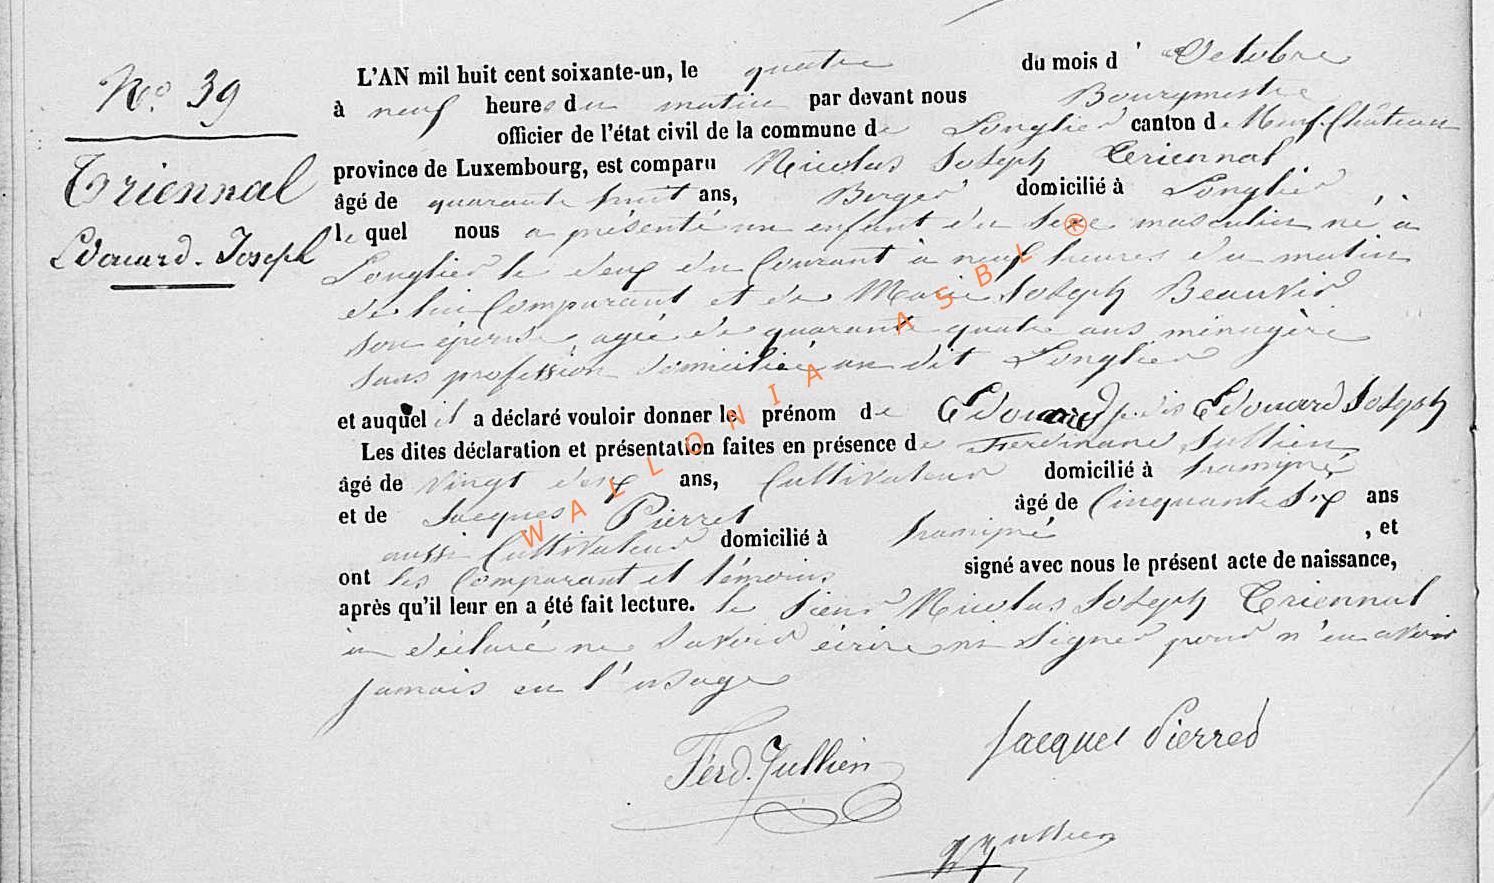 N.º 39
Triennal
Edouard. Joseph
L'AN mil huit cent soixante-un, le quatre du mois d'octobre
à neuf heures du matin par devant nous Bourgmestre
officier de l'état civil de la commune de Longlier canton de Neufchâteau
province de Luxembourg, est comparu Nicolas Joseph Triennal
âgé de quarante huit ans, Berger domicilié à Longlier
le quel nous a présenté un enfant du sexe masculin né à
Longlier le deux du Courant à neuf heures du matin
de lui Comparant et de Marie Joseph Beauvir
son épouse, agée de quarante quatre ans ménagère
sans profession domiciliée au dit Longlier
et auquel il a déclaré vouloir donner le prénom de Edouard Edouard Joseph
Les dites déclaration et présentation faites en présence de Ferdinand Jullien
âgé de vingt deux ans, Cultivateur domicilié à
et de Jacques Pierret âgé de Cinquante six ans
aussi Cultivateur domicilié à , et
ont les Comparant et témoins signé avec nous le présent acte de naissance,
après qu'il leur en a été fait lecture. le sieur Nicolas Joseph Triennal
a déclaré ne savoir écrire ni signer pour n'en avoir
jamais eu l'usage
Jacques Pierred
Ferd. Jullien
Jullien
WALLONIA ASBL ®